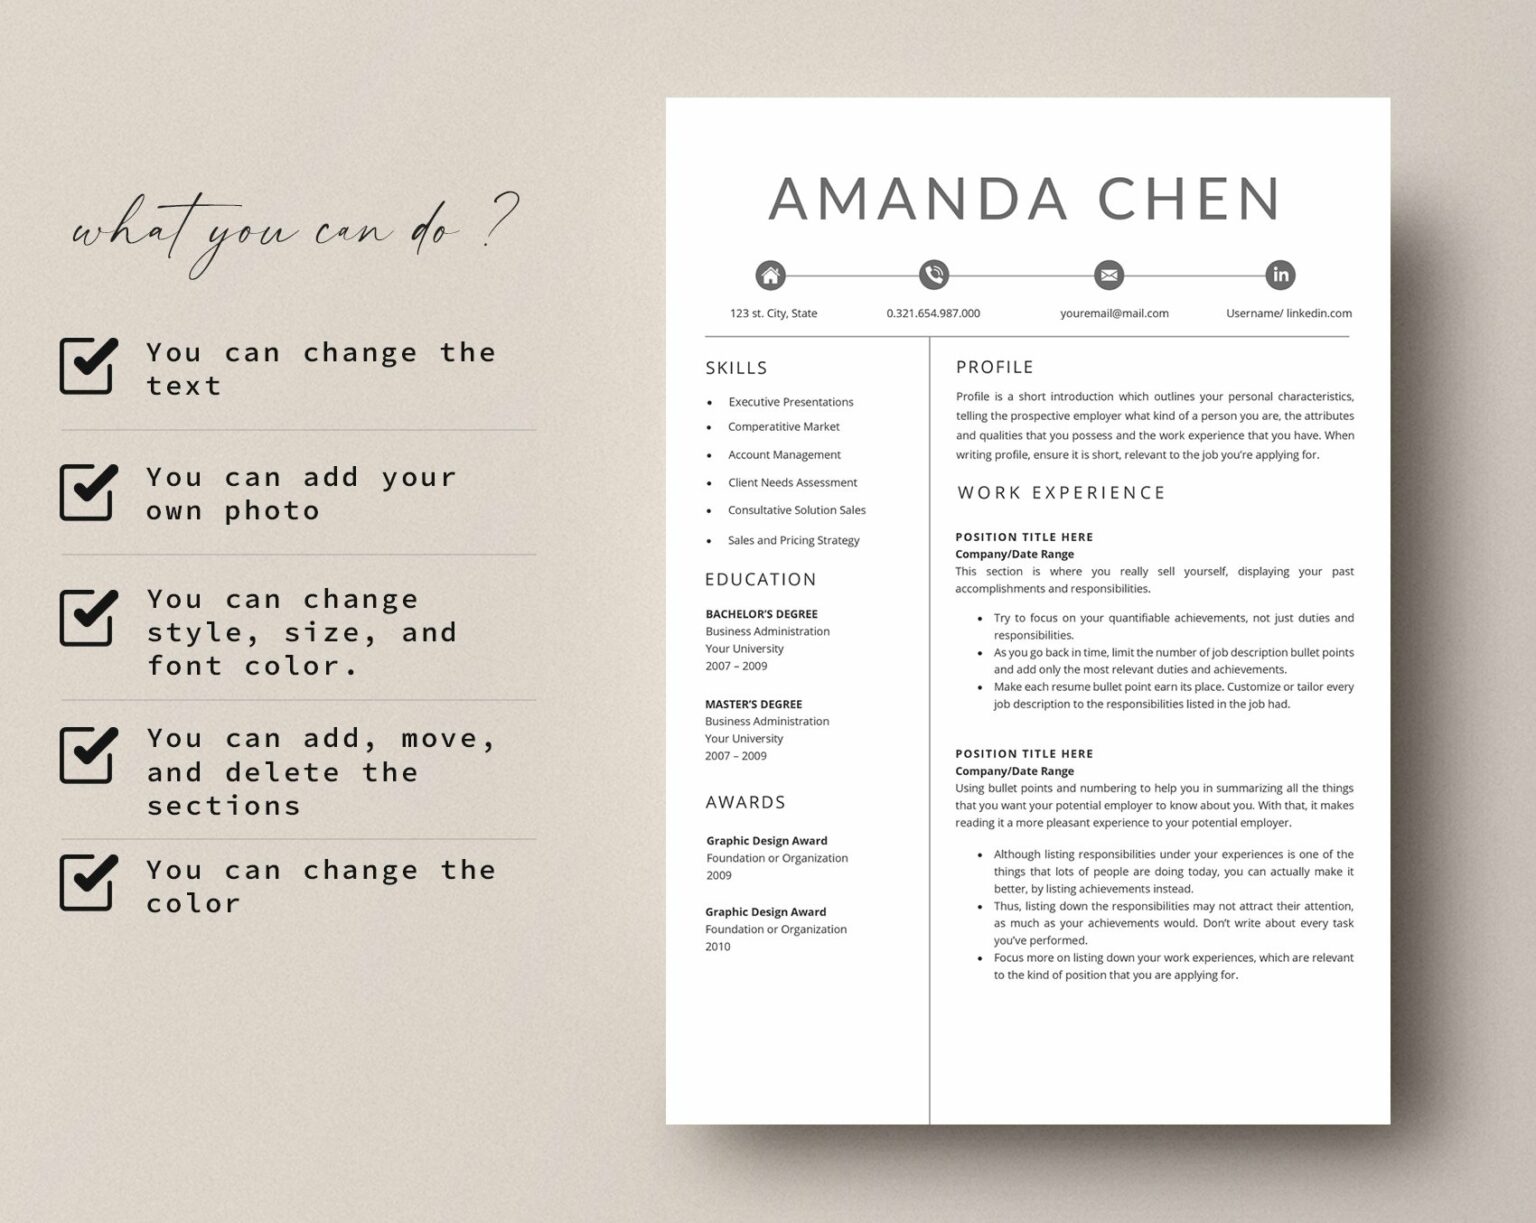 what you can do ?
You can change the
text
You can add your
own photo
You can change
style, size, and
font color.
You can add, move,
and delete the
sections
You can change the
color
AMANDA CHEN
in
123 st. City, State
0.321.654.987.000
youremail@mail.com
Username/ linkedin.com
SKILLS
• Executive Presentations
• Comperatitive Market
• Account Management
• Client Needs Assessment
• Consultative Solution Sales
• Sales and Pricing Strategy
EDUCATION
BACHELOR'S DEGREE
Business Administration
Your University
2007 – 2009
MASTER'S DEGREE
Business Administration
Your University
2007 – 2009
AWARDS
Graphic Design Award
Foundation or Organization
2009
Graphic Design Award
Foundation or Organization
2010
PROFILE
Profile is a short introduction which outlines your personal characteristics,
telling the prospective employer what kind of a person you are, the attributes
and qualities that you possess and the work experience that you have. When
writing profile, ensure it is short, relevant to the job you're applying for.
WORK EXPERIENCE
POSITION TITLE HERE
Company/Date Range
This section is where you really sell yourself, displaying your past
accomplishments and responsibilities.
• Try to focus on your quantifiable achievements, not just duties and
responsibilities.
• As you go back in time, limit the number of job description bullet points
and add only the most relevant duties and achievements.
• Make each resume bullet point earn its place. Customize or tailor every
job description to the responsibilities listed in the job had.
POSITION TITLE HERE
Company/Date Range
Using bullet points and numbering to help you in summarizing all the things
that you want your potential employer to know about you. With that, it makes
reading it a more pleasant experience to your potential employer.
• Although listing responsibilities under your experiences is one of the
things that lots of people are doing today, you can actually make it
better, by listing achievements instead.
• Thus, listing down the responsibilities may not attract their attention,
as much as your achievements would. Don't write about every task
you've performed.
• Focus more on listing down your work experiences, which are relevant
to the kind of position that you are applying for.